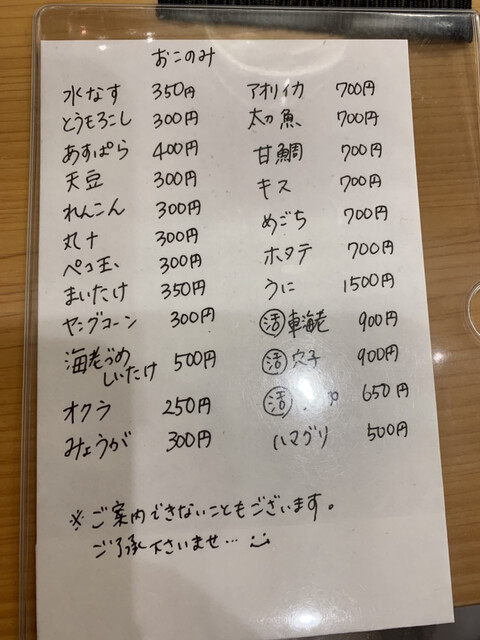 おこのみ
水なす 350円
とうもろこし 300円
あすぱら 400円
天豆 300円
れんこん 300円
丸十 300円
ペコ玉 300円
まいたけ 350円
ヤングコーン 300円
海老づめ
しいたけ 500円
オクラ 250円
みょうが 300円
アオリイカ 700円
太刀魚 700円
甘鯛 700円
キス 700円
めごち 700円
ホタテ 700円
うに 1500円
活 車海老 900円
活 穴子 900円
活 650円
ハマグリ 500円
※ご案内できないこともございます。
ご了承下さいませ…